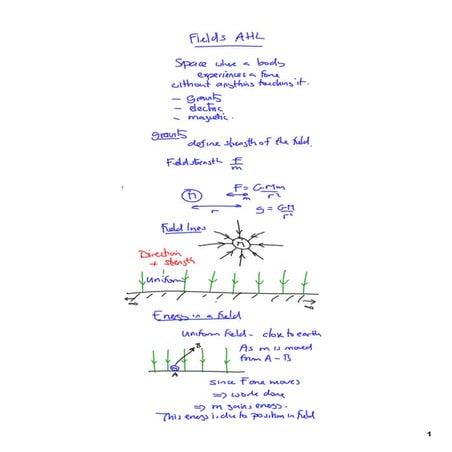 Fields AHL
Space where a body
experiences a force
without anything touching it.
– Gravity
– electric
– magnetic.
Gravity
define strength of the field.
Field strength F/m
M F = GMm/r²
m
r g = GM/r²
Field lines
M
Direction
+ strength
uniform
Energy in a field
Uniform field - close to earth
B As m is moved
from A - B
A
since Force moves
⇒ work done
⇒ m gains energy.
This energy is due to position in field
1